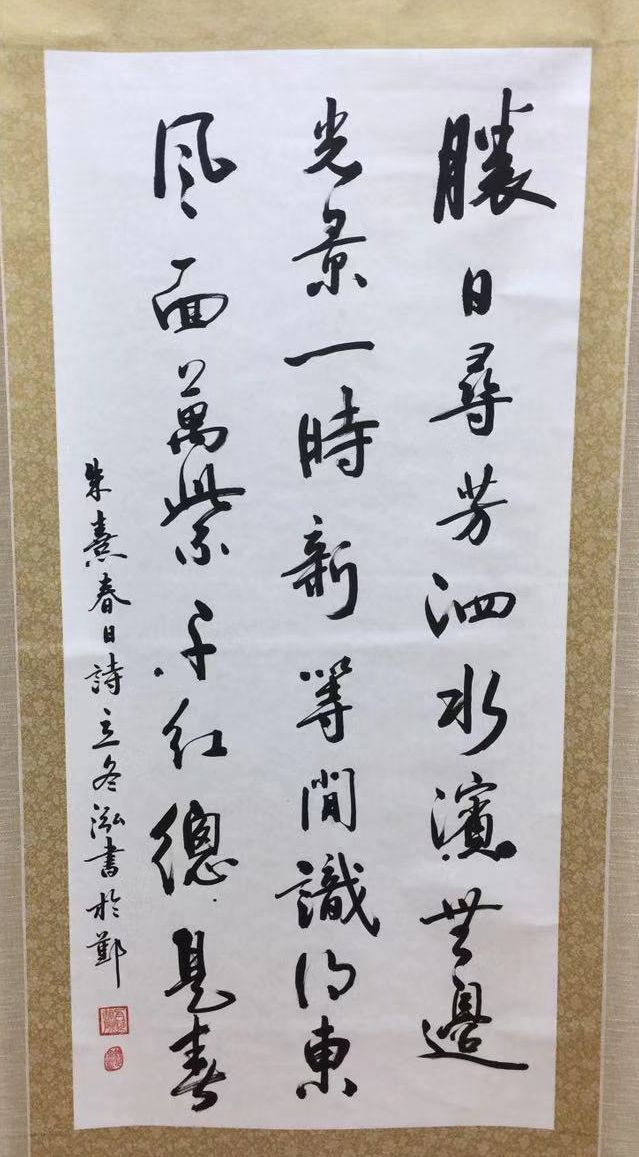 勝日尋芳泗水濱無邊
光景一時新等閒識得東
風面萬紫千紅總是春
朱熹春日詩立冬泓書於鄭